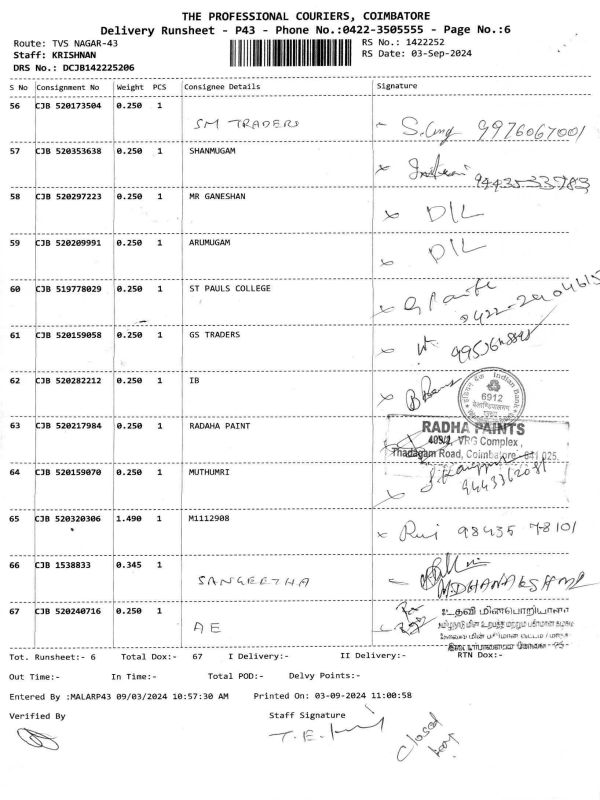 THE PROFESSIONAL COURIERS, COIMBATORE
Delivery Runsheet - P43 - Phone No.:0422-3505555 - Page No.:6
Route: TVS NAGAR-43 RS No.: 1422252
Staff: KRISHNAN RS Date: 03-Sep-2024
DRS No.: DCJB142225206
S No Consignment No Weight PCS Consignee Details Signature
56 CJB 520173504 0.250 1 SM TRADERS 9976067001
57 CJB 520353638 0.250 1 SHANMUGAM 9443533783
58 CJB 520297223 0.250 1 MR GANESHAN D/L
59 CJB 520209991 0.250 1 ARUMUGAM D/L
60 CJB 519778029 0.250 1 ST PAULS COLLEGE
61 CJB 520159058 0.250 1 GS TRADERS
62 CJB 520282212 0.250 1 IB
Indian Bank
6912
63 CJB 520217984 0.250 1 RADAHA PAINT
RADHA PAINTS
409/2, VRG Complex,
Thadagam Road, Coimbatore - 641 025.
64 CJB 520159070 0.250 1 MUTHUMRI
65 CJB 520320306 1.490 1 M1112908 98435 78101
66 CJB 1538833 0.345 1 SANGEETHA
67 CJB 520240716 0.250 1 AE
உதவி மின்பொறியாளர்
Tot. Runsheet:- 6 Total Dox:- 67 I Delivery:- II Delivery:- RTN Dox:-
Out Time:- In Time:- Total POD:- Delvy Points:-
Entered By :MALARP43 09/03/2024 10:57:30 AM Printed On: 03-09-2024 11:00:58
Verified By Staff Signature
closed